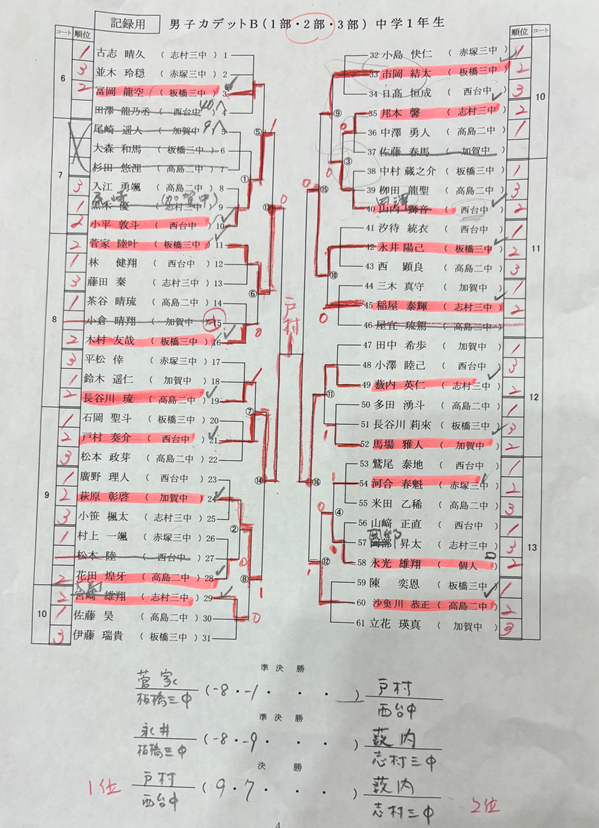 記録用 男子カデットB(1部・2部・3部) 中学1年生
コート 順位
6
1 古志 晴久 (志村三中) 1
3 並木 玲穏 (赤塚三中) 2
2 冨岡 龍空 (板橋三中) 3
田澤 龍乃丞 (西台中) 4
7
尾崎 遥人 (加賀中) 5
大森 和馬 (板橋三中) 6
杉田 悠浬 (高島二中) 7
3 入江 勇颯 (高島二中) 8
1 (志村三中) 9
2 小平 敦斗 (西台中) 10
8
2 菅家 陸叶 (板橋三中) 11
1 林 健翔 (西台中) 12
3 藤田 秦 (志村三中) 13
1 茶谷 晴琉 (高島二中) 14
小倉 晴翔 (加賀中) 15
2 木村 友哉 (板橋三中) 16
3 平松 倖 (赤塚三中) 17
1 鈴木 遥仁 (加賀中) 18
2 長谷川 琉 (高島二中) 19
9
1 石岡 聖斗 (板橋三中) 20
2 戸村 奏介 (西台中) 21
3 松本 政芽 (高島二中) 22
1 廣野 理人 (西台中) 23
2 萩原 彰啓 (加賀中) 24
3 小笹 楓太 (志村三中) 25
1 村上 一颯 (高島三中) 26
松本 陸 (西台中) 27
2 花田 煌牙 (高島二中) 28
10
2 宮崎 雄翔 (志村三中) 29
1 佐藤 昊 (高島二中) 30
3 伊藤 瑞貴 (板橋三中) 31
コート 順位
10
32 小島 快仁 (赤塚三中) 1
33 市岡 結太 (板橋三中) 2
34 日髙 恒成 (西台中) 3
35 邦本 馨 (志村三中) 2
36 中澤 勇人 (高島二中) 1
37 佐藤 春馬 (加賀中)
11
38 中村 蔵之介 (板橋三中) 1
39 柳田 龍聖 (高島三中) 3
40 (西台中) 2
41 汐待 統衣 (西台中) 1
42 永井 陽己 (板橋三中) 2
43 西 顕良 (高島二中) 3
44 三木 真守 (加賀中) 1
45 稲屋 泰輝 (志村三中) 2
46 屋宜 琉熙 (高島三中)
12
47 田中 希歩 (加賀中) 1
48 小澤 睦己 (西台中) 3
49 薮内 英仁 (志村三中) 2
50 多田 湧斗 (高島二中) 1
51 長谷川 莉來 (板橋三中) 3
52 馬場 雅人 (加賀中) 2
13
53 鷲尾 泰地 (西台中) 1
54 河合 春魁 (赤塚三中) 2
55 米田 乙稀 (高島二中) 3
56 山﨑 正直 (西台中) 1
57 昇太 (志村三中) 3
58 永光 雄翔 (個人) 2
59 陳 奕恩 (板橋三中) 1
60 沙魚川 恭正 (高島二中) 2
61 立花 瑛真 (加賀中) 3
戸村
準決勝
菅家 (-8・-1・ ・ ・ ) 戸村
板橋三中 西台中
準決勝
永井 (-8・-9・ ・ ・ ) 薮内
板橋三中 志村三中
決勝
1位 戸村 (9・7・ ・ ・ ) 薮内 2位
西台中 志村三中
4